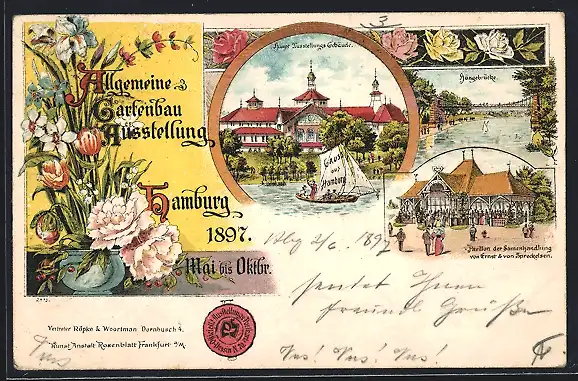 3
Haupt Ausstellungs Gebäude.
Hängebrücke.
Allgemeine
Gartenbau
Ausstellung
Hamburg
1897.
Mai bis Oktbr.
Gruss
aus
Hamburg
Pavillon der Samenhandlung
von Ernst & von Spreckelsen.
2/6 1897
sendet Ihnen
freundl Grüße
Vertreter Röpke & Woortman Dornhusch 4.
Kunst Anstalt Rosenblatt Frankfurt a/M.